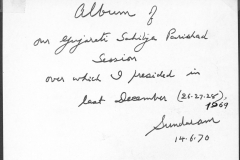 Album of
our Gujarati Sahitya Parishad
Session
over which I presided in
last December (26-27-28), 1969
Sundaram
14.6.70